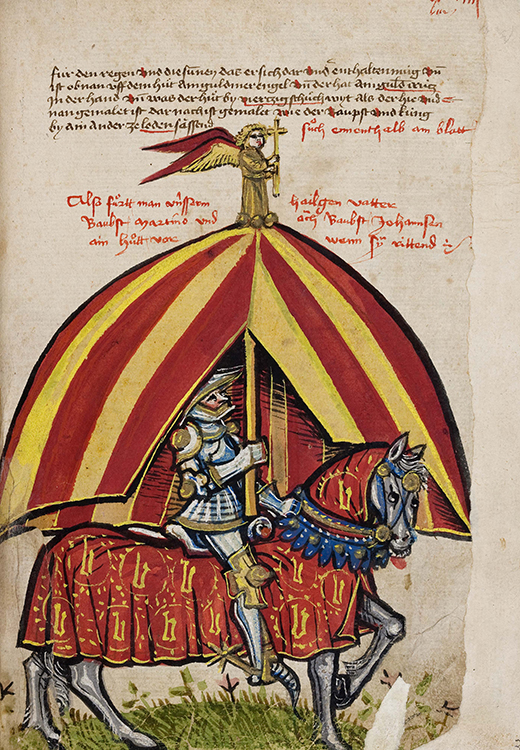 für den regen und die sunen das er sich dar under enthalten mug un
ist obnan uff dem hůt ain guldiner engel un der hat ain guldi crütz
in der hand un was der hůt by vierzig schůch wyt als der hie unde
nan gemalet ist dar nach ist gemalet wie der baupst und küng
by ain ander ze leden sässend
sůch ement halb am blatt
Also fůrtt man unserm hailgen vatter
Baubst martino und och Baubst Johannsen
ain hůtt vor wenn sÿ rittend